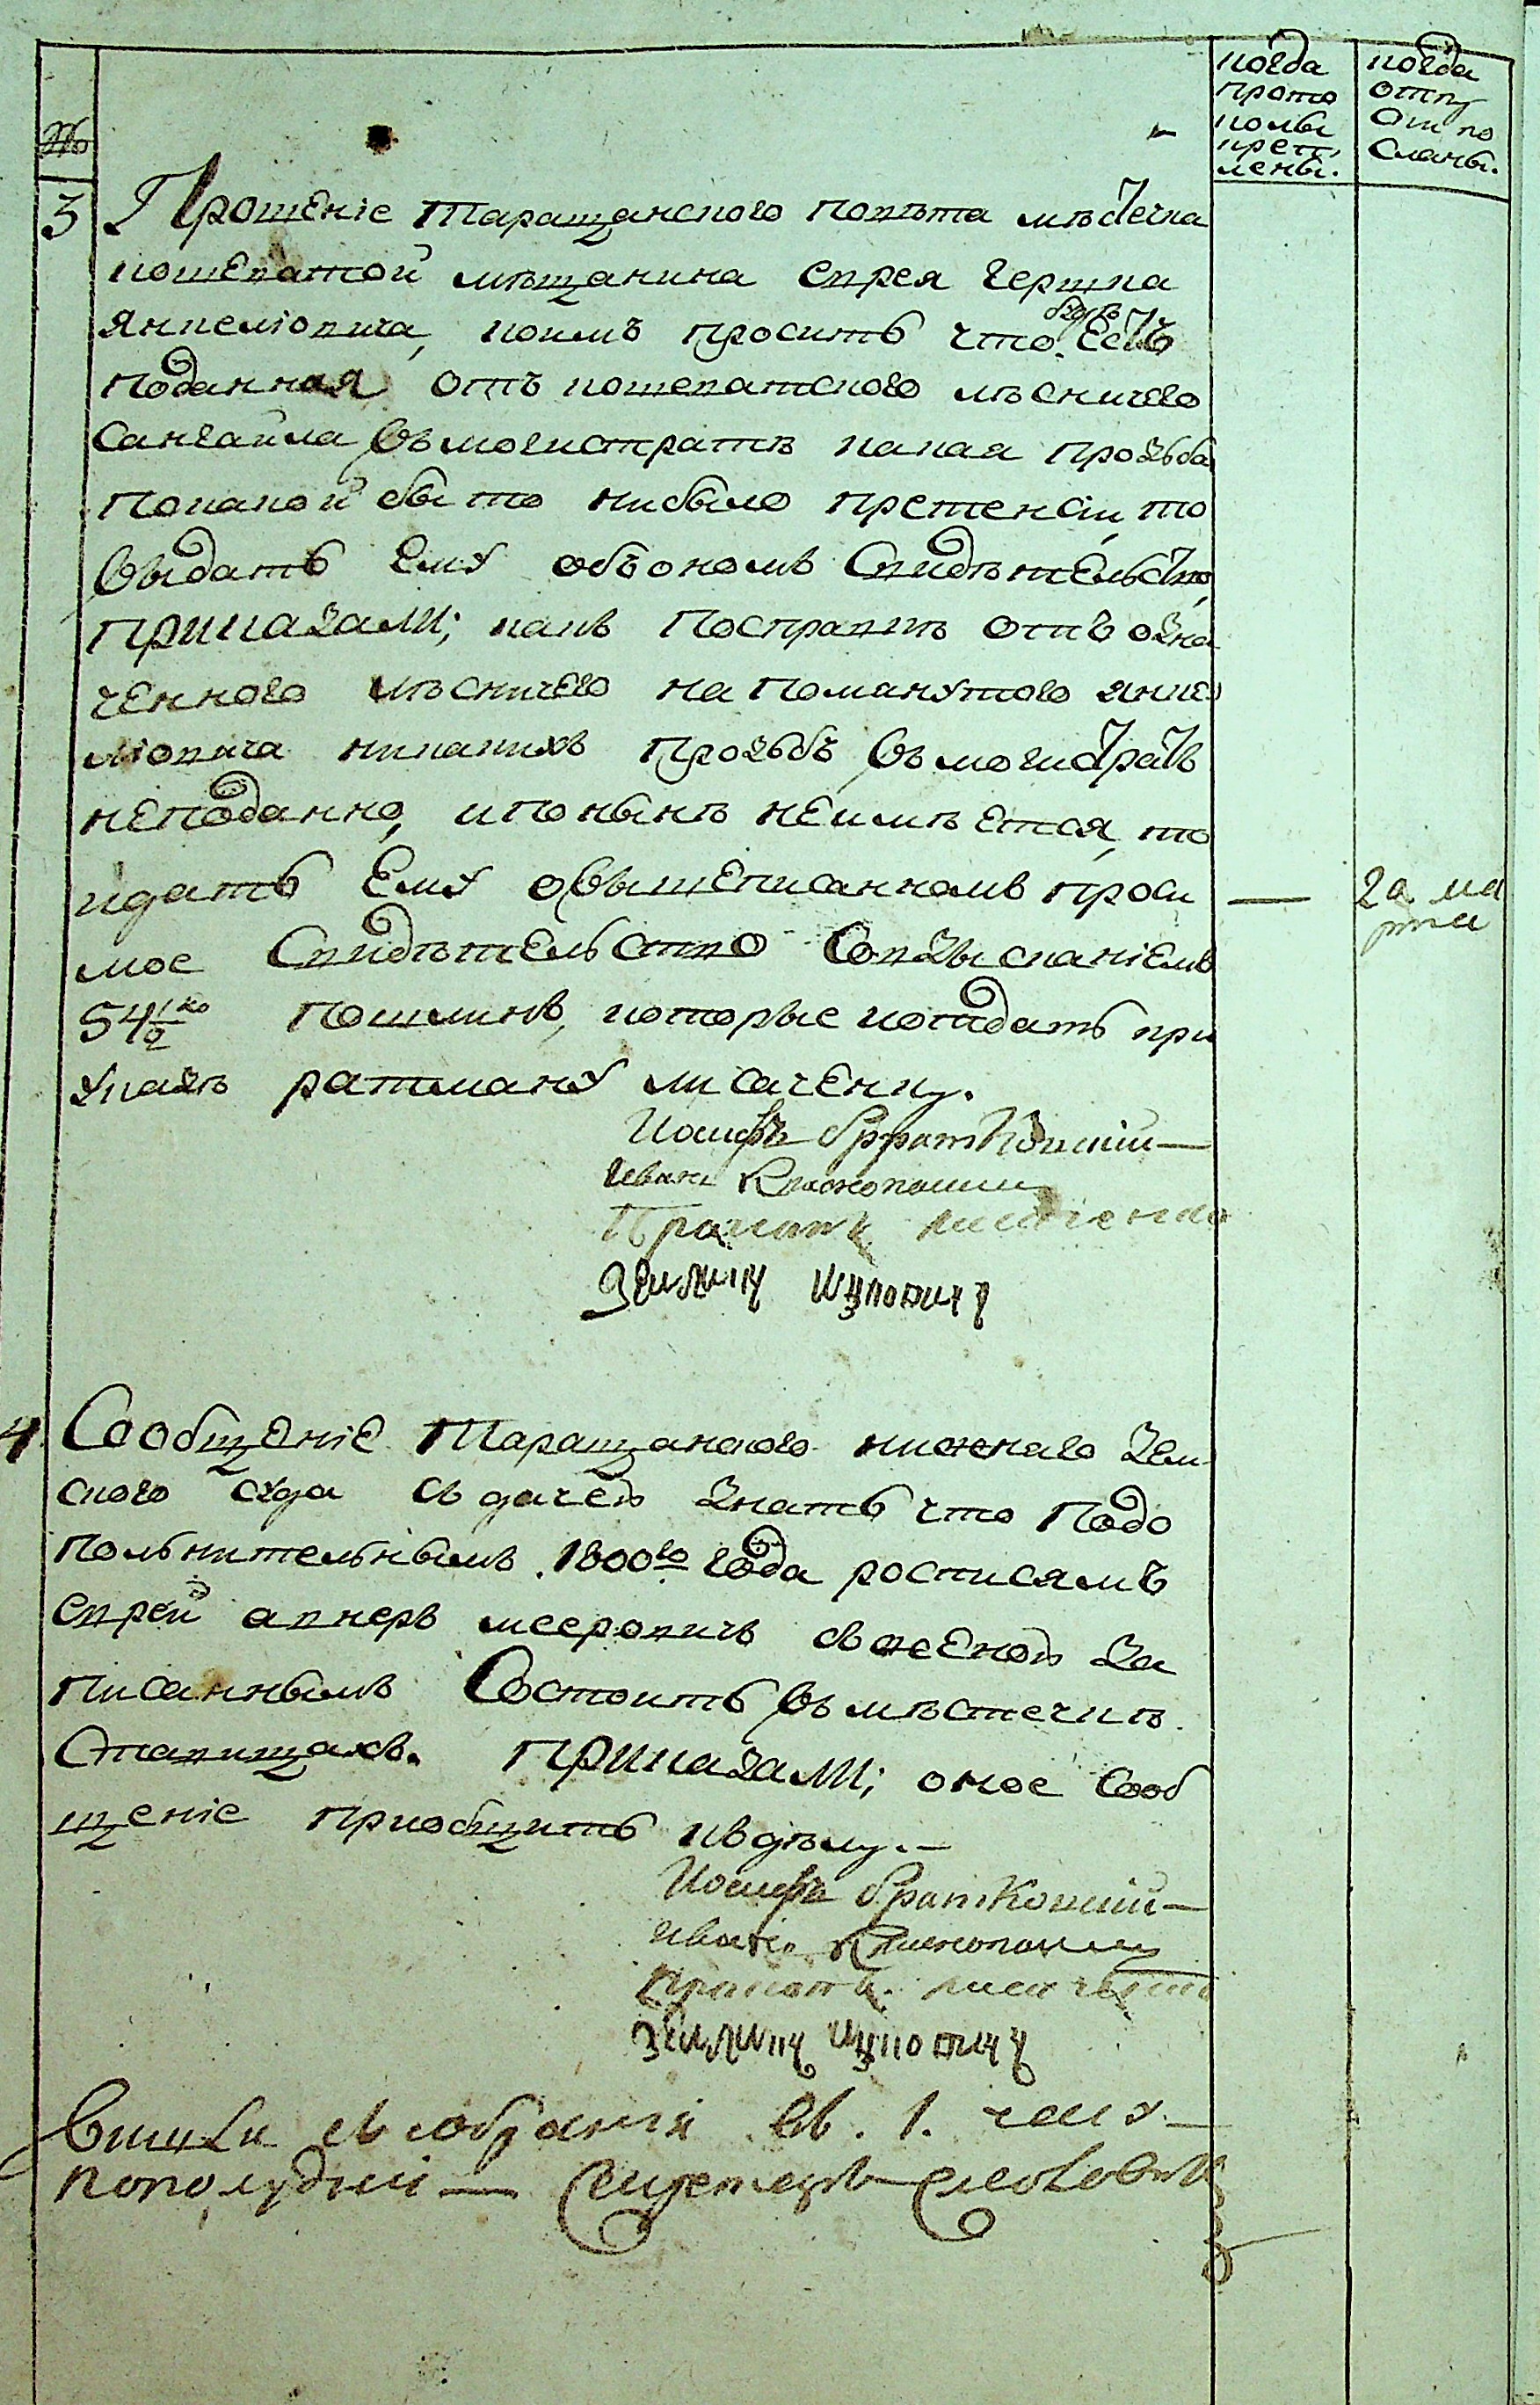 №
когда
прото
колы
крет,
лены.
когда
отпу
ски по
сланы.
3 Прошеніе таращанского повѣта мѣстечка
кошеватой мѣщанина еврея гершка
янкеліовича, коимъ проситъ что естъ
поданная отъ кошеватского лѣсничего
Сангайла въ могистратѣ какая прозьба
покакой бы то нибыло претенсіи, то
выдать Ему объономъ Свидѣтельство,
приказали; какъ посправкѣ отъ озна
ченного лѣсничего на помянутого янке
ліовича никакихъ прозьбъ въ могистратъ
неподанно, ипонынѣ неимѣется, то
идать Ему овышеписанномъ проси
мое Свидѣтельство Совзысканіемъ
54½ ко пошлинъ, которые иотдать при
указѣ ратману лисаченку.
2а ма
рта
Иосифъ Братковскій
Иванъ
Прокопъ лисаченко
4. Сообщеніе Таращанского нижнего Зем
ского суда съ дачею знать что подо
полънительнымъ 1800го года росписямъ
еврей авнеръ мееровичъ съ женою за
писаннымъ Состоитъ въ мѣстечкѣ
Ставищахъ. приказали; оное Сооб
щеніе приобщить къ дѣлу.—
Иосифъ Братковскій
Иванъ
Прокопъ лисаченко
Вишли съ собранія въ. 1. часу
пополудни —